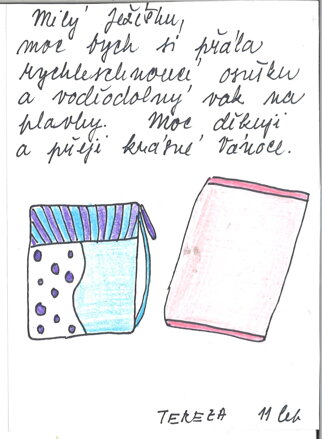 Milý Ježíšku,
moc bych si přála
rychleschnoucí osušku
a voděodolný vak na
plavky. Moc děkuji
a přeji krásné Vánoce.
TEREZA 11 let